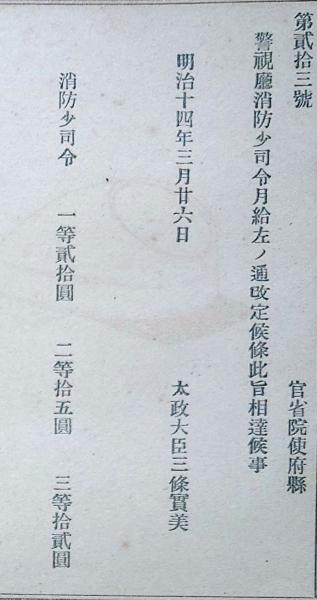 第貳拾三號　官省院使府縣
警視廳消防少司令月給左ノ通改定候條此旨相達候事
明治十四年三月廿六日　太政大臣三條實美
消防少司令　一等貳拾圓　二等拾五圓　三等拾貳圓